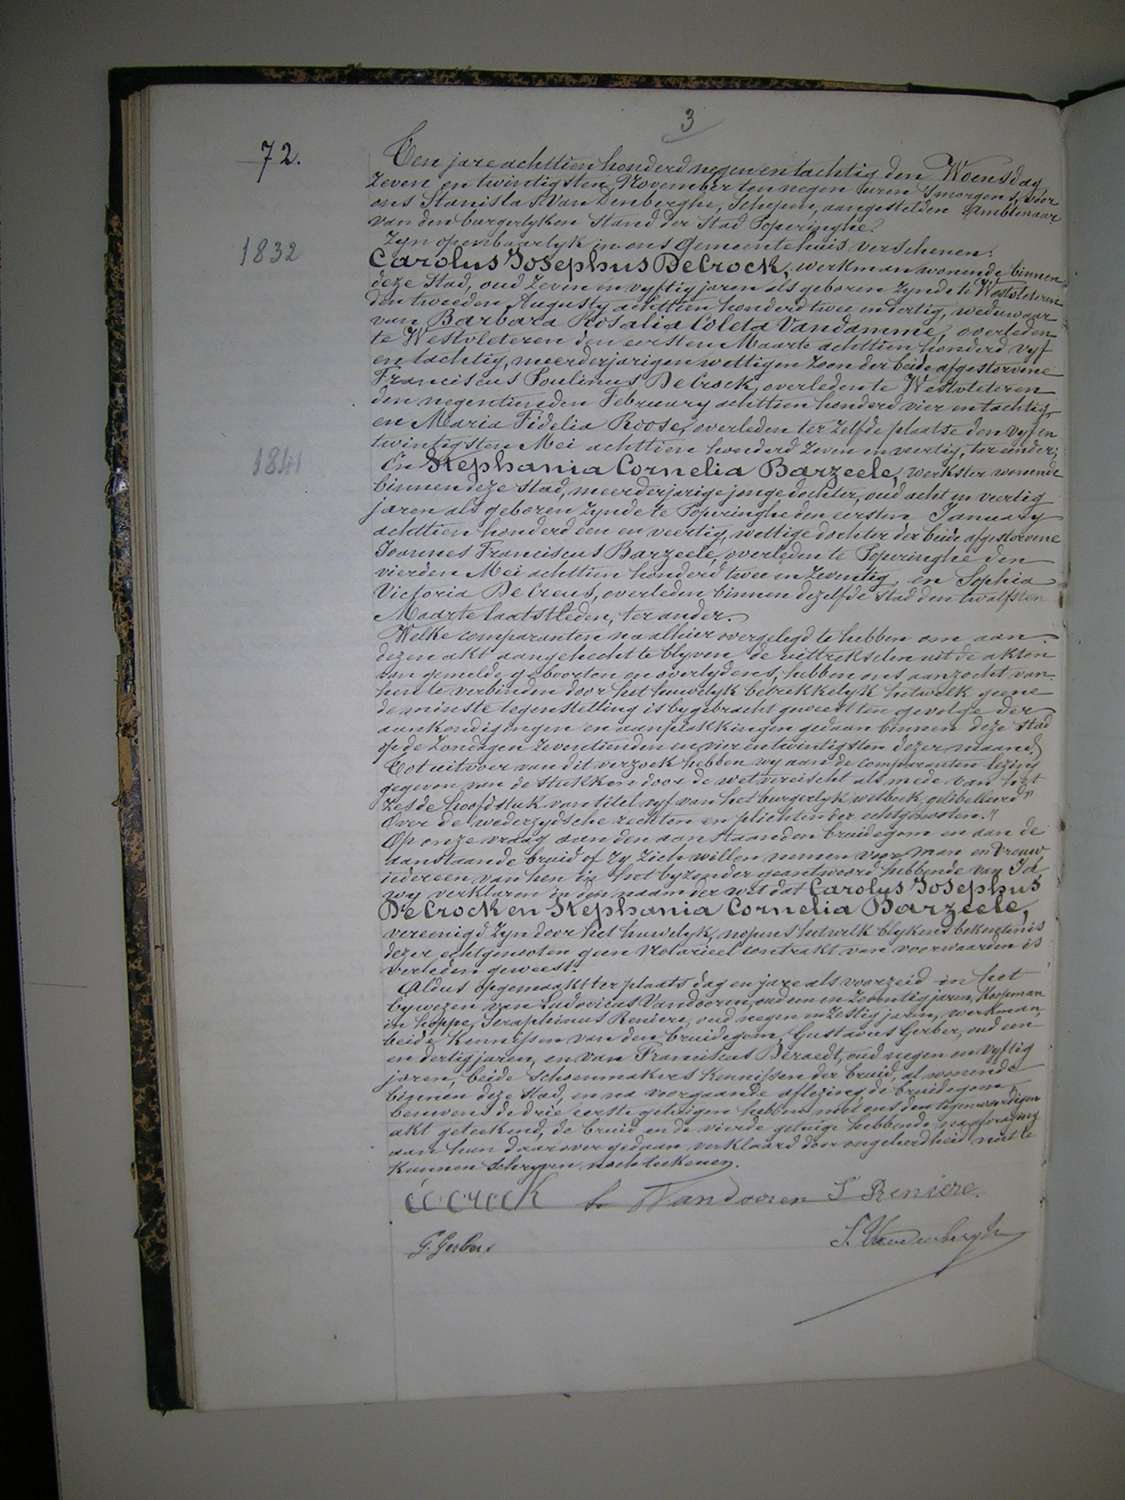 3
72.
Ten jare achttien honderd negen en tachtig den Woensdag
Zeven en twintigsten November ten negen uren 's morgens, voor
ons Stanislas Vandenberghe, Schepen, aangestelden Ambtenaar
van den burgerlyken Stand der Stad Poperinghe.
Zyn openbaarlyk in ons Gemeentehuis verschenen:
1832
Carolus Josephus De Crock, werkman wonende binnen
deze Stad, oud Zeven en vyftig jaren als geboren zynde te Westvleteren
den tweeden Augusty achttien honderd twee en dertig, weduwaar
van Barbara Rosalia Coleta Vandamme, overleden
te Westvleteren den eersten Maarte achttien honderd vyf
en tachtig, meerderjarigen wettigen Zoon der beide afgestorvene
Franciscus Poulinus De Crock, overleden te Westvleteren
den negentienden February achttien honderd vier en tachtig,
en Maria Fidelia Roose, overleden ter zelfde plaatse den vyf en
twintigsten Mei achttien honderd Zeven en veertig, ter eender;
1841
En Stephania Cornelia Barzeele, werkster wonende
binnen deze stad, meerderjarige jonge dochter, oud acht en veertig
jaren als geboren zynde te Poperinghe den eersten January
achttien honderd een en veertig, wettige dochter der beide afgestorvene
Joannes Franciscus Barzeele, overleden te Poperinghe den
vierden Mei achttien honderd twee en Zeventig, en Sophia
Victoria De Creus, overleden binnen dezelfde stad den twalfsten
Maarte laatstleden, ter ander.
Welke comparanten na alhier overgelegd te hebben om aan
dezen akt aangehecht te blyven de uittrekselen uit de akten
van gemelde geboorten en overlydens, hebben ons aanzocht van
hen te verbinden door het huwelyk betrekkelyk hetwelk geene
de minste tegenstelling is bygebracht geweest ten gevolge der
aankondigingen en aanplakkingen gedaan binnen deze stad
op de Zondagen Zeventienden en vier en twintigsten dezer maand.
Tot uitvoer van dit verzoek hebben wy aan de comparanten lezing
gegeven van de stukken door de wet vereischt als mede van het
Zesde hoofdstuk van titel vyf van het burgerlyk wetboek gelibelleerd "
Over de wederzydsche rechten en plichten der echtgenooten. "
Op onze vraag aan den aanstaanden bruidegom en aan de
aanstaande bruid of zy zich willen nemen voor man en vrouw
iedereen van hen in het byzonder geantwoord hebbende van Ja,
wy verklaren in den naam der wet dat Carolus Josephus
De Crock en Stephania Cornelia Barzeele,
vereenigd zyn door het huwelyk, nopens hetwelk blykens bekentenis
dezer echtgenooten geen Notarieel contrakt van voorwaarden is
verleden geweest.
Aldus opgemaakt ter plaats dag en jare als voorzeid in het
bywezen van Ludovicus Vandooren, oud een en Zeventig jaren, Koopman
in hoppe, Seraphinus Reniere, oud negen en Zestig jaren, werkman,
beide kennissen van den bruidegom, Gustavus Gerber, oud een
en dertig jaren, en van Franciscus Beraedt, oud negen en vyftig
jaren, beide schoenmakers kennissen der bruid, al wonende
binnen deze Stad, en na voorgaande aflezing, de bruidegom
benevens de drie eerste getuigen hebben met ons den tegenwoordigen
akt geteekend, de bruid en de vierde getuige hebbende naar vraag
aan hun daarover gedaan verklaard door ongeleerdheid niet te
kunnen schryven noch teekenen.
L. Vandooren S Reniere.
G. Gerber S. Vandenberghe